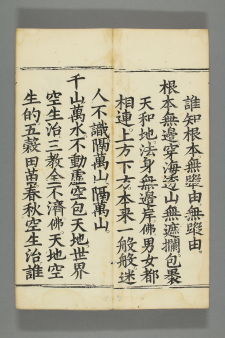 誰知根本無蹤由無蹤由
根本無邊寧海邊山無遮攔包裹
天和地法身無邊岸佛男女都
相連上方下方本來一般般迷
人不識隔萬山隔萬山
千山萬水不動虛空包天地世界
空生治三教全不濟佛天地空
生的五穀田苗春秋空生治誰